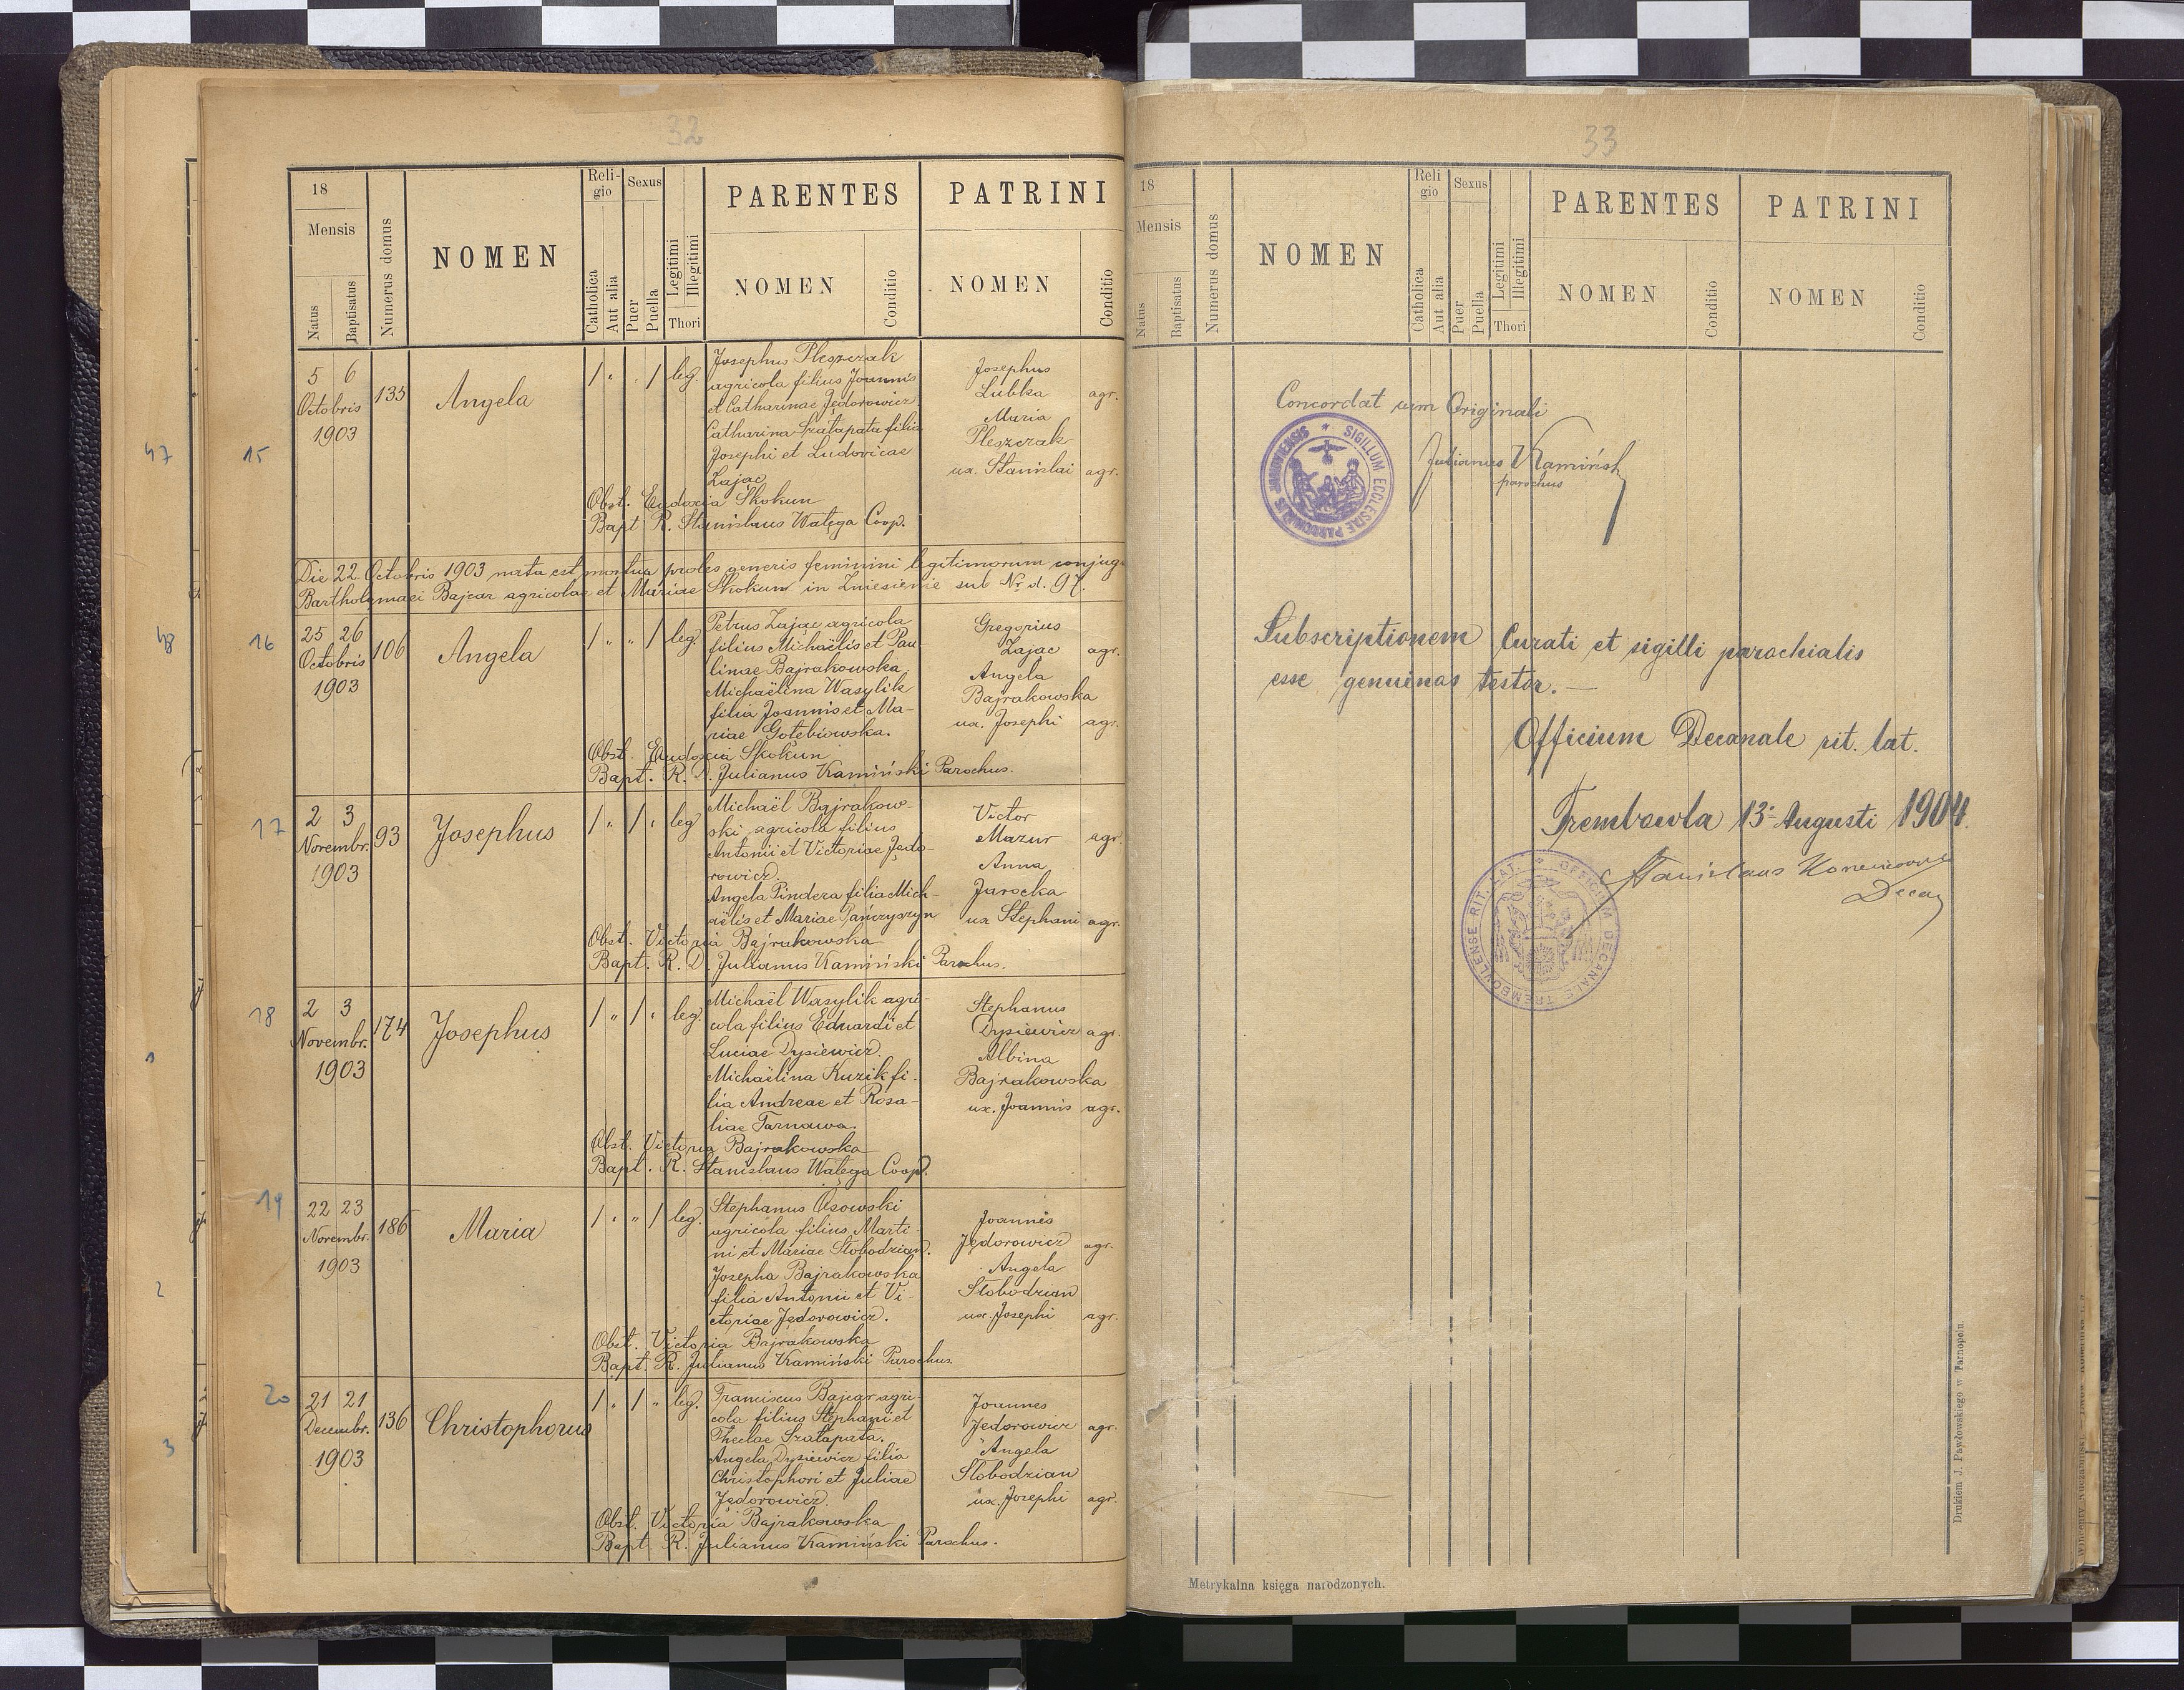 32
18
Mensis
Natus
Baptisatus
Numerus domus
NOMEN
Reli-
gio
Catholica
Aut alia
Sexus
Puer
Puella
Legitimi
Illegitimi
Thori
PARENTES
NOMEN
Conditio
PATRINI
NOMEN
Conditio
47
15
5 6
Octobris
1903
135
Angela
/ " . / leg.
Josephus Pleszczak
agricola filius Joannis
et Catharinae Jędorowicz
Catharina Szałapata filia
Josephi et Ludovicae
Zając
Josephus
Lubka agr.
Maria
Pleszczak
ux. Stanislai agr.
Obst. Eudoxia Skokun
Bapt R. Stanislaus Wałęga Coop.
Die 22 Octobris 1903 nata est mortua proles generis feminini legitimorum conjug
Bartholomaei Bajcar agricolae et Mariae Skokun in Zniesienie sub Nr. d. 97.
48
16
25 26
Octobris
1903
106
Angela
/ " " / leg.
Petrus Zając agricola
filius Michaëlis et Pau-
linae Bajrakowska
Michaëlina Wasylik
filia Joannis et Ma-
riae Gołebiowska.
Gregorius
Zając agr.
Angela
Bajrakowska
ux. Josephi agr.
Obst. Eudoxia Skokun
Bapt. R. D. Julianus Kamiński Parochus.
17
2 3
Novembr.
1903
93
Josephus
/ " / " leg
Michaël Bajrakow-
ski agricola filius
Antonii et Victoriae Jędo-
rowicz.
Angela Pindera filia Mich-
aëlis et Mariae Pańczyszyn
Victor
Mazur agr.
Anna
Jarocka
ux Stephani agr.
Obst. Victoria Bajrakowska
Bapt. R. D. Julianus Kamiński Parochus.
18
2 3
Novembr.
1903
174
Josephus
/ " / " leg
Michaël Wasylik agri-
cola filius Eduardi et
Luciae Dysiewicz.
Michaëlina Kuzik fi-
lia Andreae et Rosa-
liae Tarnawa.
Stephanus
Dysiewicz agr.
Albina
Bajrakowska
ux. Joannis agr.
Obst. Victoria Bajrakowska
Bapt. R. Stanislaus Wałęga Coop.
1
19
22 23
Novembr.
1903
186
Maria
/ " " / leg.
Stephanus Osowski
agricola filius Marti
ni et Mariae Słobodzian.
Josepha Bajrakowska
filia Antonii et Vi-
ctoriae Jędorowicz.
Joannes
Jędorowicz agr.
Angela
Słobodzian
ux. Josephi agr.
Obst. Victoria Bajrakowska
Bapt. R. Julianus Kamiński Parochus.
2
20
21 21
Decembr.
1903
136
Christophorus
/ " / " leg.
Franciscus Bajcar agri-
cola filius Stephani et
Theclae Szałapata.
Angela Dysiewicz filia
Christophori et Juliae
Jędorowicz.
Joannes
Jędorowicz agr.
Angela
Słobodzian
ux. Josephi agr.
Obst. Victoria Bajrakowska
Bapt. R. Julianus Kamiński Parochus.
3
33
18
Mensis
Natus
Baptisatus
Numerus domus
NOMEN
Reli
gio
Catholica
Aut alia
Sexus
Puer
Puella
Legitimi
Illegitimi
Thori
PARENTES
NOMEN
Conditio
PATRINI
NOMEN
Conditio
Concordat cum Originali
SIGILLUM ECCLESIAE PAROCHIALIS JANOVIENSIS
Julianus Kamiński
parochus
Subscriptionem Curati et sigilli parochialis
esse genuinas testor. —
Officium Decanale rit. lat.
Trembowla 13 Augusti 1904.
Stanislaus
Decan
OFFICIUM DECANALE TREMBOVLENSE RIT. LAT.
Metrykalna księga narodzonych.
Drukiem J. Pawłowskiego w Tarnopolu